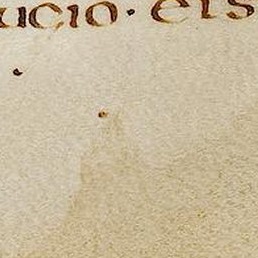 ucio · els